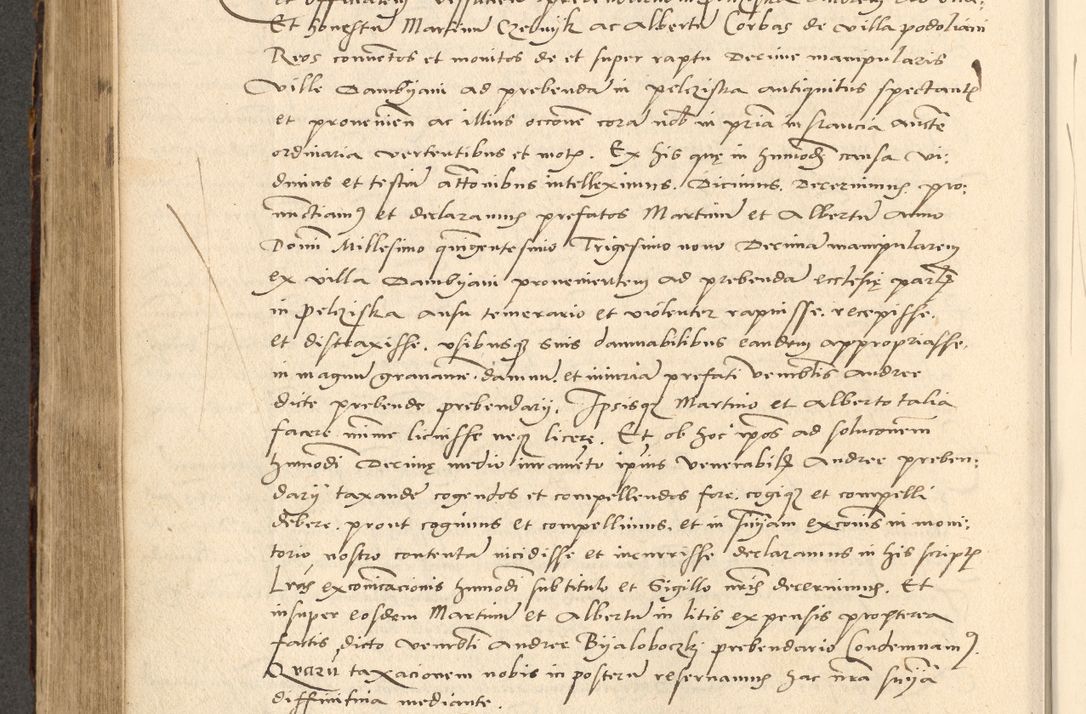 Et honestu Martinu Czelnyk ac Albertu Corbas de villa podoliani
Reos conuentos et monitos de et super raptu Decime manipularis
ville Dambyani ad prebenda in pelczyska antiquitus spectantz
et prouenien ac illius occone cora nob in pria instancia aucte
ordinaria vertentibus et motz. Ex his que in huiusmodi causa vi:
dimus et testiu attonibus intelleximus. Dicimus. Decernimus. pro:
nuctiamus et declaramus prefatos Martinu et Albertu Anno
Domi Millesimo quingentesimo Trigesimo nono Decima manipularem
ex villa Dambyani prouenientem ad prebenda ecclesie parlis
in Pelczyska ausu temerario et violenter rapuisse, recepisse,
et distraxisse, vsibusq suis damnabilibus eandem appropriasse,
in magnu grauame damnu et iniuria prefati venerblis Andree
dicte prebende prebendarij. Ipsisq Martino et Alberto talia
facere mime licuisse neq licere. Et ob hoc ipos ad solucionem
huiusmodi Decime medio iuramento ipius venerabilis Andree preben:
darij taxande cogendos et compellendos fore. cogiq et compelli
debere, prout cogimus et compellimus, et in sniam excois in moni:
torio nostro contenta incidisse et incurrisse declaramus in his scriptz
Lras excomcacionis huiusmodi sub titulo et Sigillo nris decernimus. Et
insuper eosdem Martinu et Albertu in litis expensis propterea
factis dicto venerbli Andree Byaloboczky prebendario Condemnamus.
Quaru taxacionem nobis in posteru reseruamus hac nra snia
diffinitiua mediante.